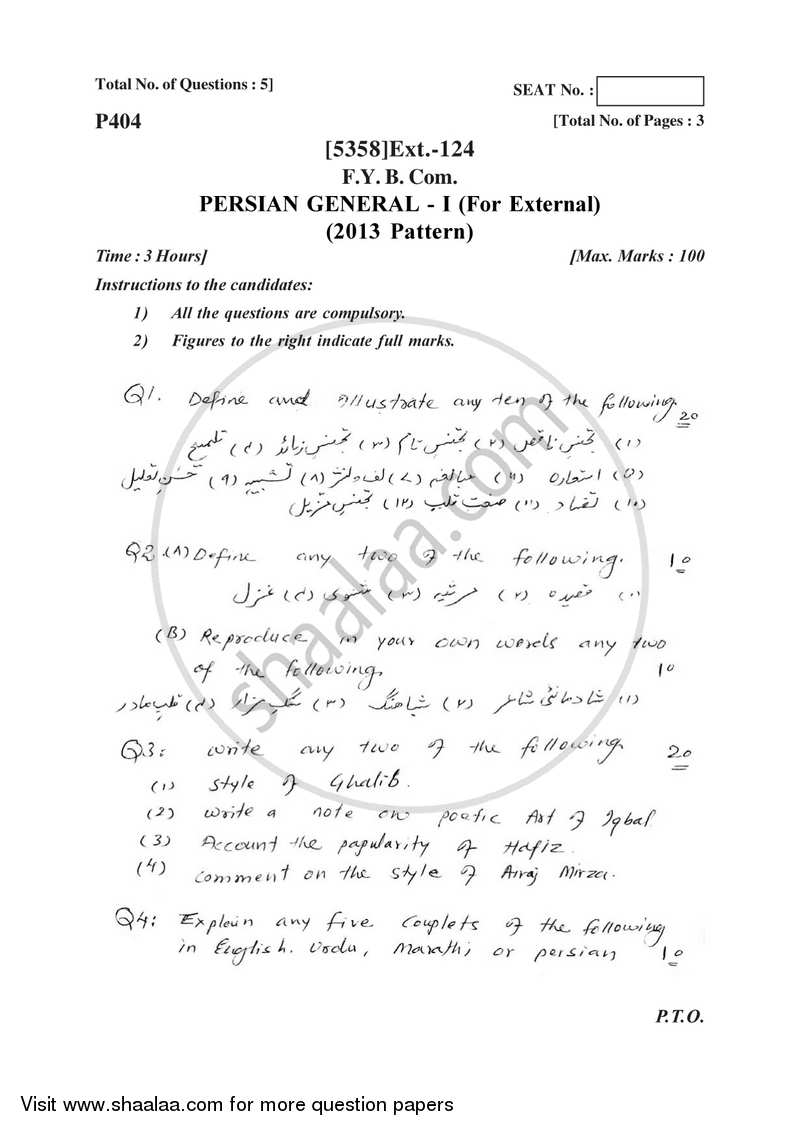 Total No. of Questions : 5]
SEAT No. :
P404
[Total No. of Pages : 3
[5358]Ext.-124
F.Y. B. Com.
PERSIAN GENERAL - I (For External)
(2013 Pattern)
Time : 3 Hours]
[Max. Marks : 100
Instructions to the candidates:
1) All the questions are compulsory.
2) Figures to the right indicate full marks.
Q1. Define and illustrate any ten of the following. 20
(۱) تجنیس ناقص (۲) تجنیس تام (۳) تجنیس زائد (۴) تلمیح
(۵) استعارہ مبالغہ (۷) لف و نشر (۸) تشبیہ (۹) حسن تعلیل
(۱۰) تضاد (۱۱) صنعت قلب (۱۲) تجنیس
Q2.(A) Define any two of the following. 10
(۱) قصیدہ (۲) مرثیہ (۳) مثنوی (۴) غزل
(B) Reproduce in your own words any two
of the following. 10
(۱) شاعر (۲) شباهنگ (۳) سنگ مزار (۴) قلب مادر
Q3: write any two of the following. 20
(1) style of Ghalib.
(2) write a note on poetic Art of Iqbal
(3) Account the papularity of Hafiz.
(4) comment on the style of Airaj Mirza.
Q4: Explein any five couplets of the following
in English. Urdu, Marathi or persian 10
P.T.O.
shaalaa.com
Visit www.shaalaa.com for more question papers